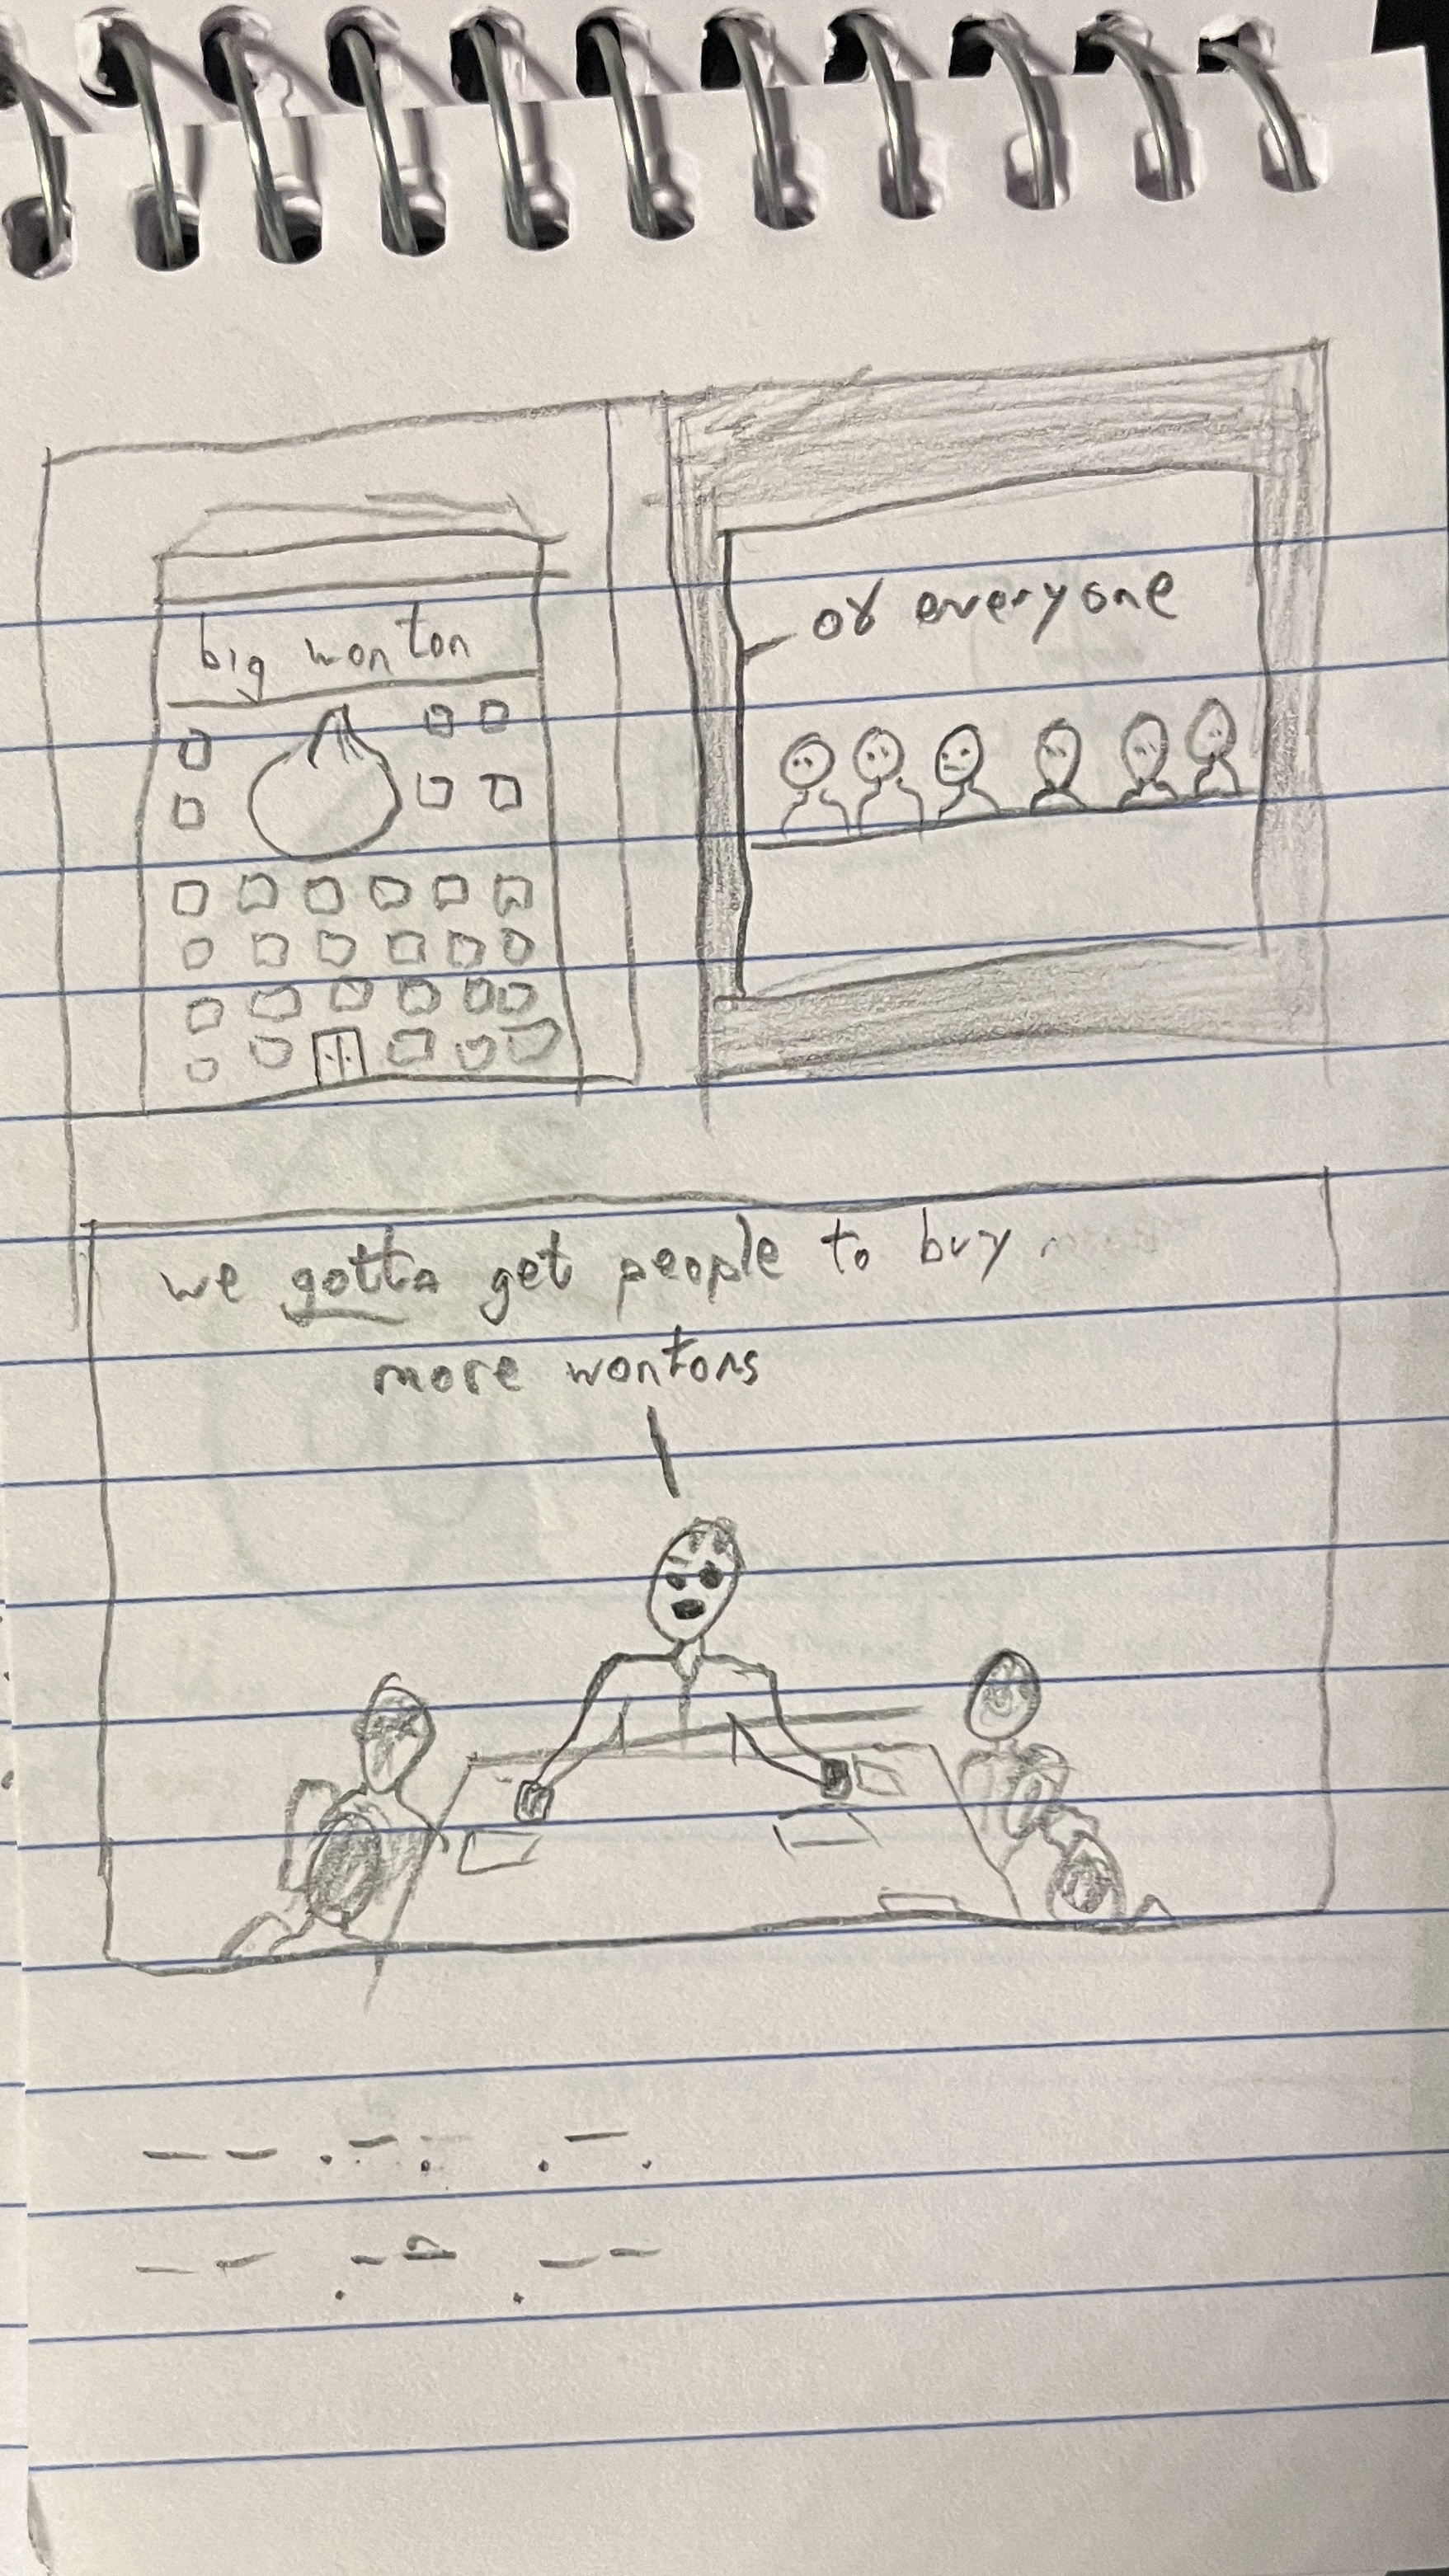 big wonton
ok everyone
we gotta get people to buy
more wontons